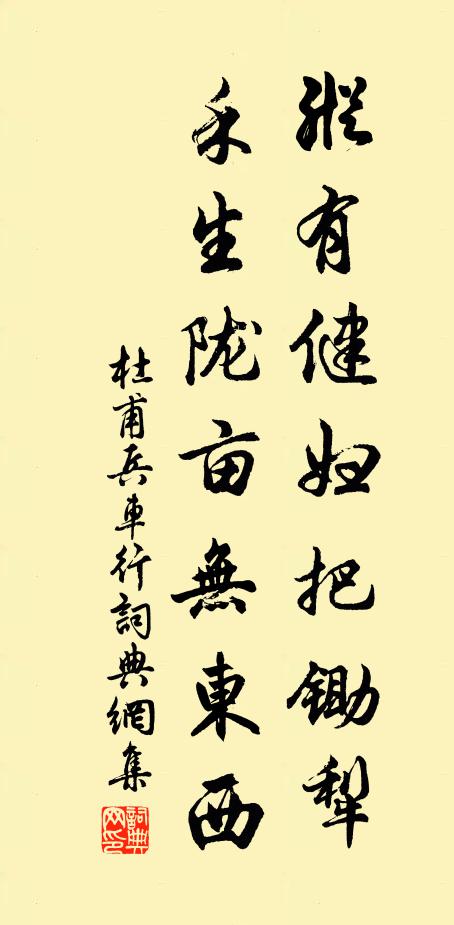 縱有健妇把锄犁
禾生陇亩無東西
杜甫兵車行詞典網集
詞典网印